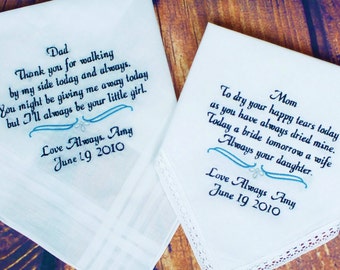 Dad
Thank you for walking
by my side today and always.
You might be giving me away today
but I'll always be your little girl.
Love Always, Amy
June 19 2010
Mom
To dry your happy tears today
as you have always dried mine.
Today a bride tomorrow a wife
Always your daughter.
Love Always Amy
June 19 2010